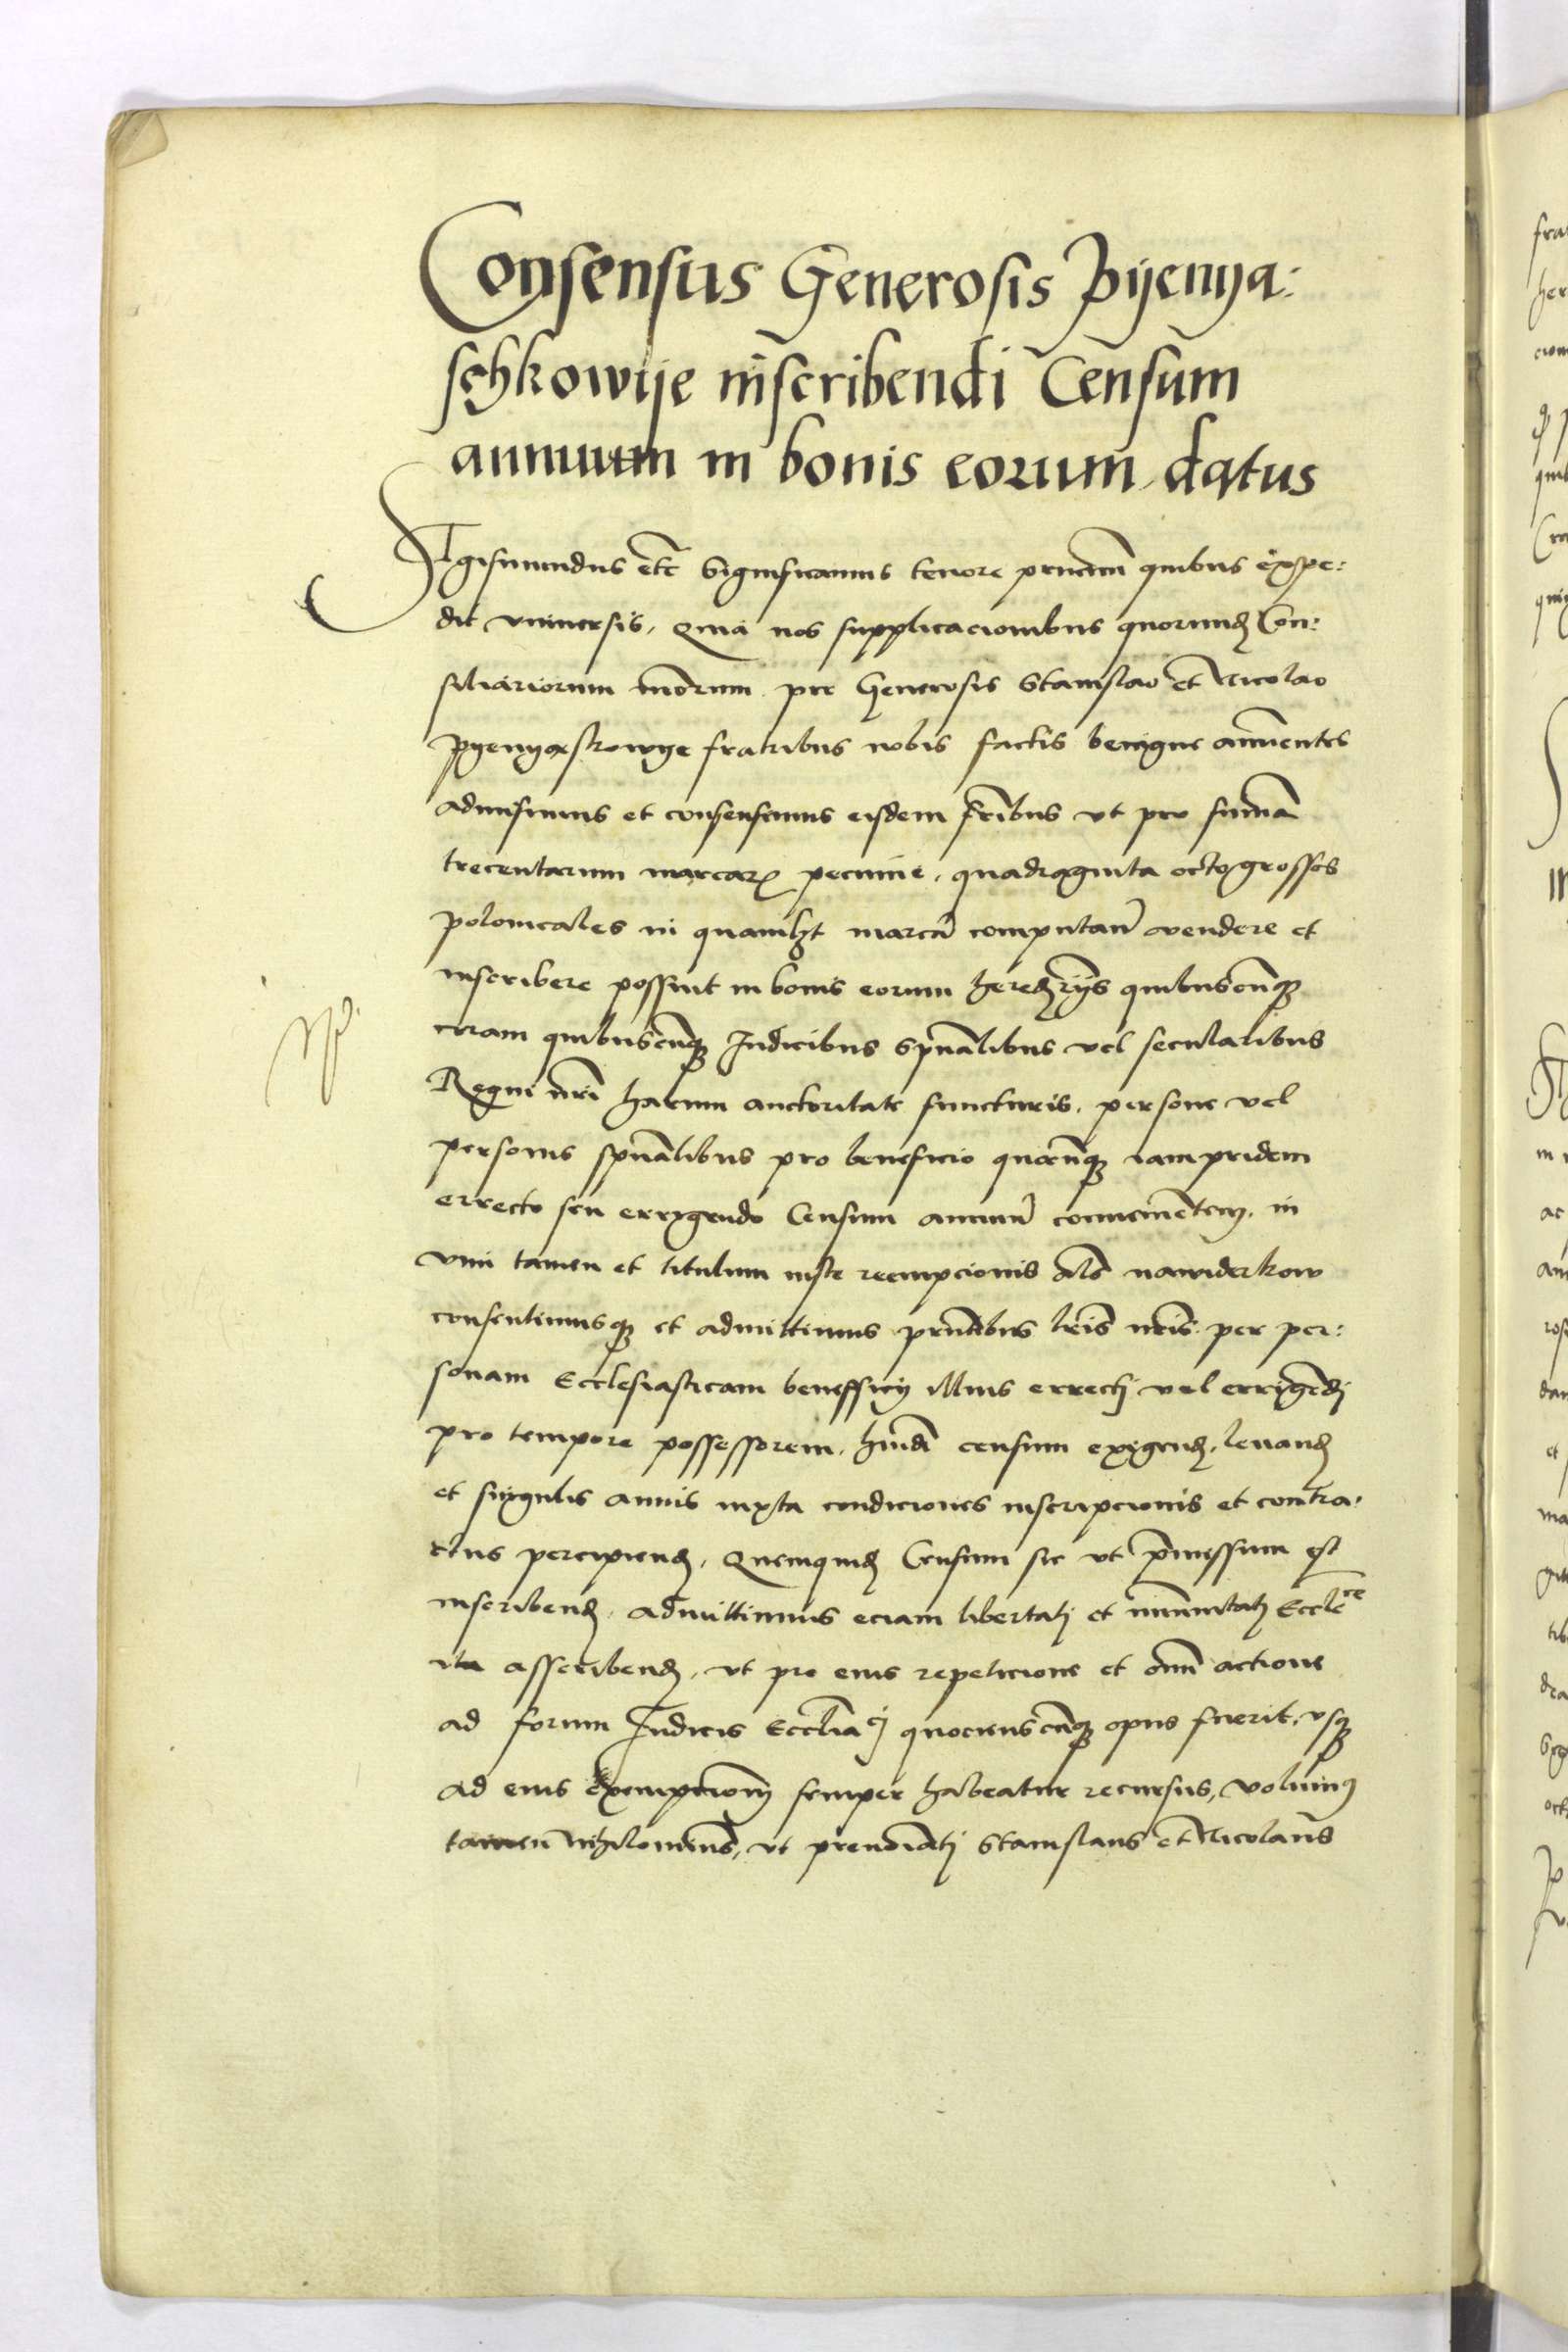 Consensus Generosis Pyenya:
schkowye inscribendi Censum
annuum in bonis eorum datus
Sigismundus etc Significamus tenore prncium quibus expe:
dit vniuersis, Quia nos supplicacionibus quorund Con:
siliariorum nrorum pro Generosis Stanislao et Nicolao
pyenyaskowye fratribus nobis factis benigne annuentes
admisimus et consensimus eisdem fribus vt pro summa
trecentarum marcar pecunie, quadraginta octo grossos
polonicales in quamlzt marca computan vendere et
inscribere possint in bonis eorum heredrys quibuscunq
coram quibuscunq Iudicibus spualibus vel secularibus
Regni nri harum auctoritate functuris, persone vel
personis spualibus pro beneficio quocunq iam pridem
errecto seu errigendo Censum annuu conuenientem, in
vim tamen et titulum iuste reempcionis als nawiderkow
consentimusq et admittimus prntibus lris nris per per:
sonam Ecclesiasticam benefficy illius errecti vel errigendi
pro tempore possessorem, hmdi censum exigend, leuand
et singulis annis iuxta condiciones inscripcionis et contra:
ctus percipiend, Quemquid Censum sic vt pmissum est
inscribend, admittimus eciam libertati et immunitati Eccle ce
ita asscribend, vt pro eius repeticione et omi actione
ad forum Iudicis Eccliaci quocienscunq opus fuerit, vsq
ad eius exempcionem semper habeatur recursus, Volumus
tamen nihilominus, vt prenoiati Stanislaus et Nicolaus